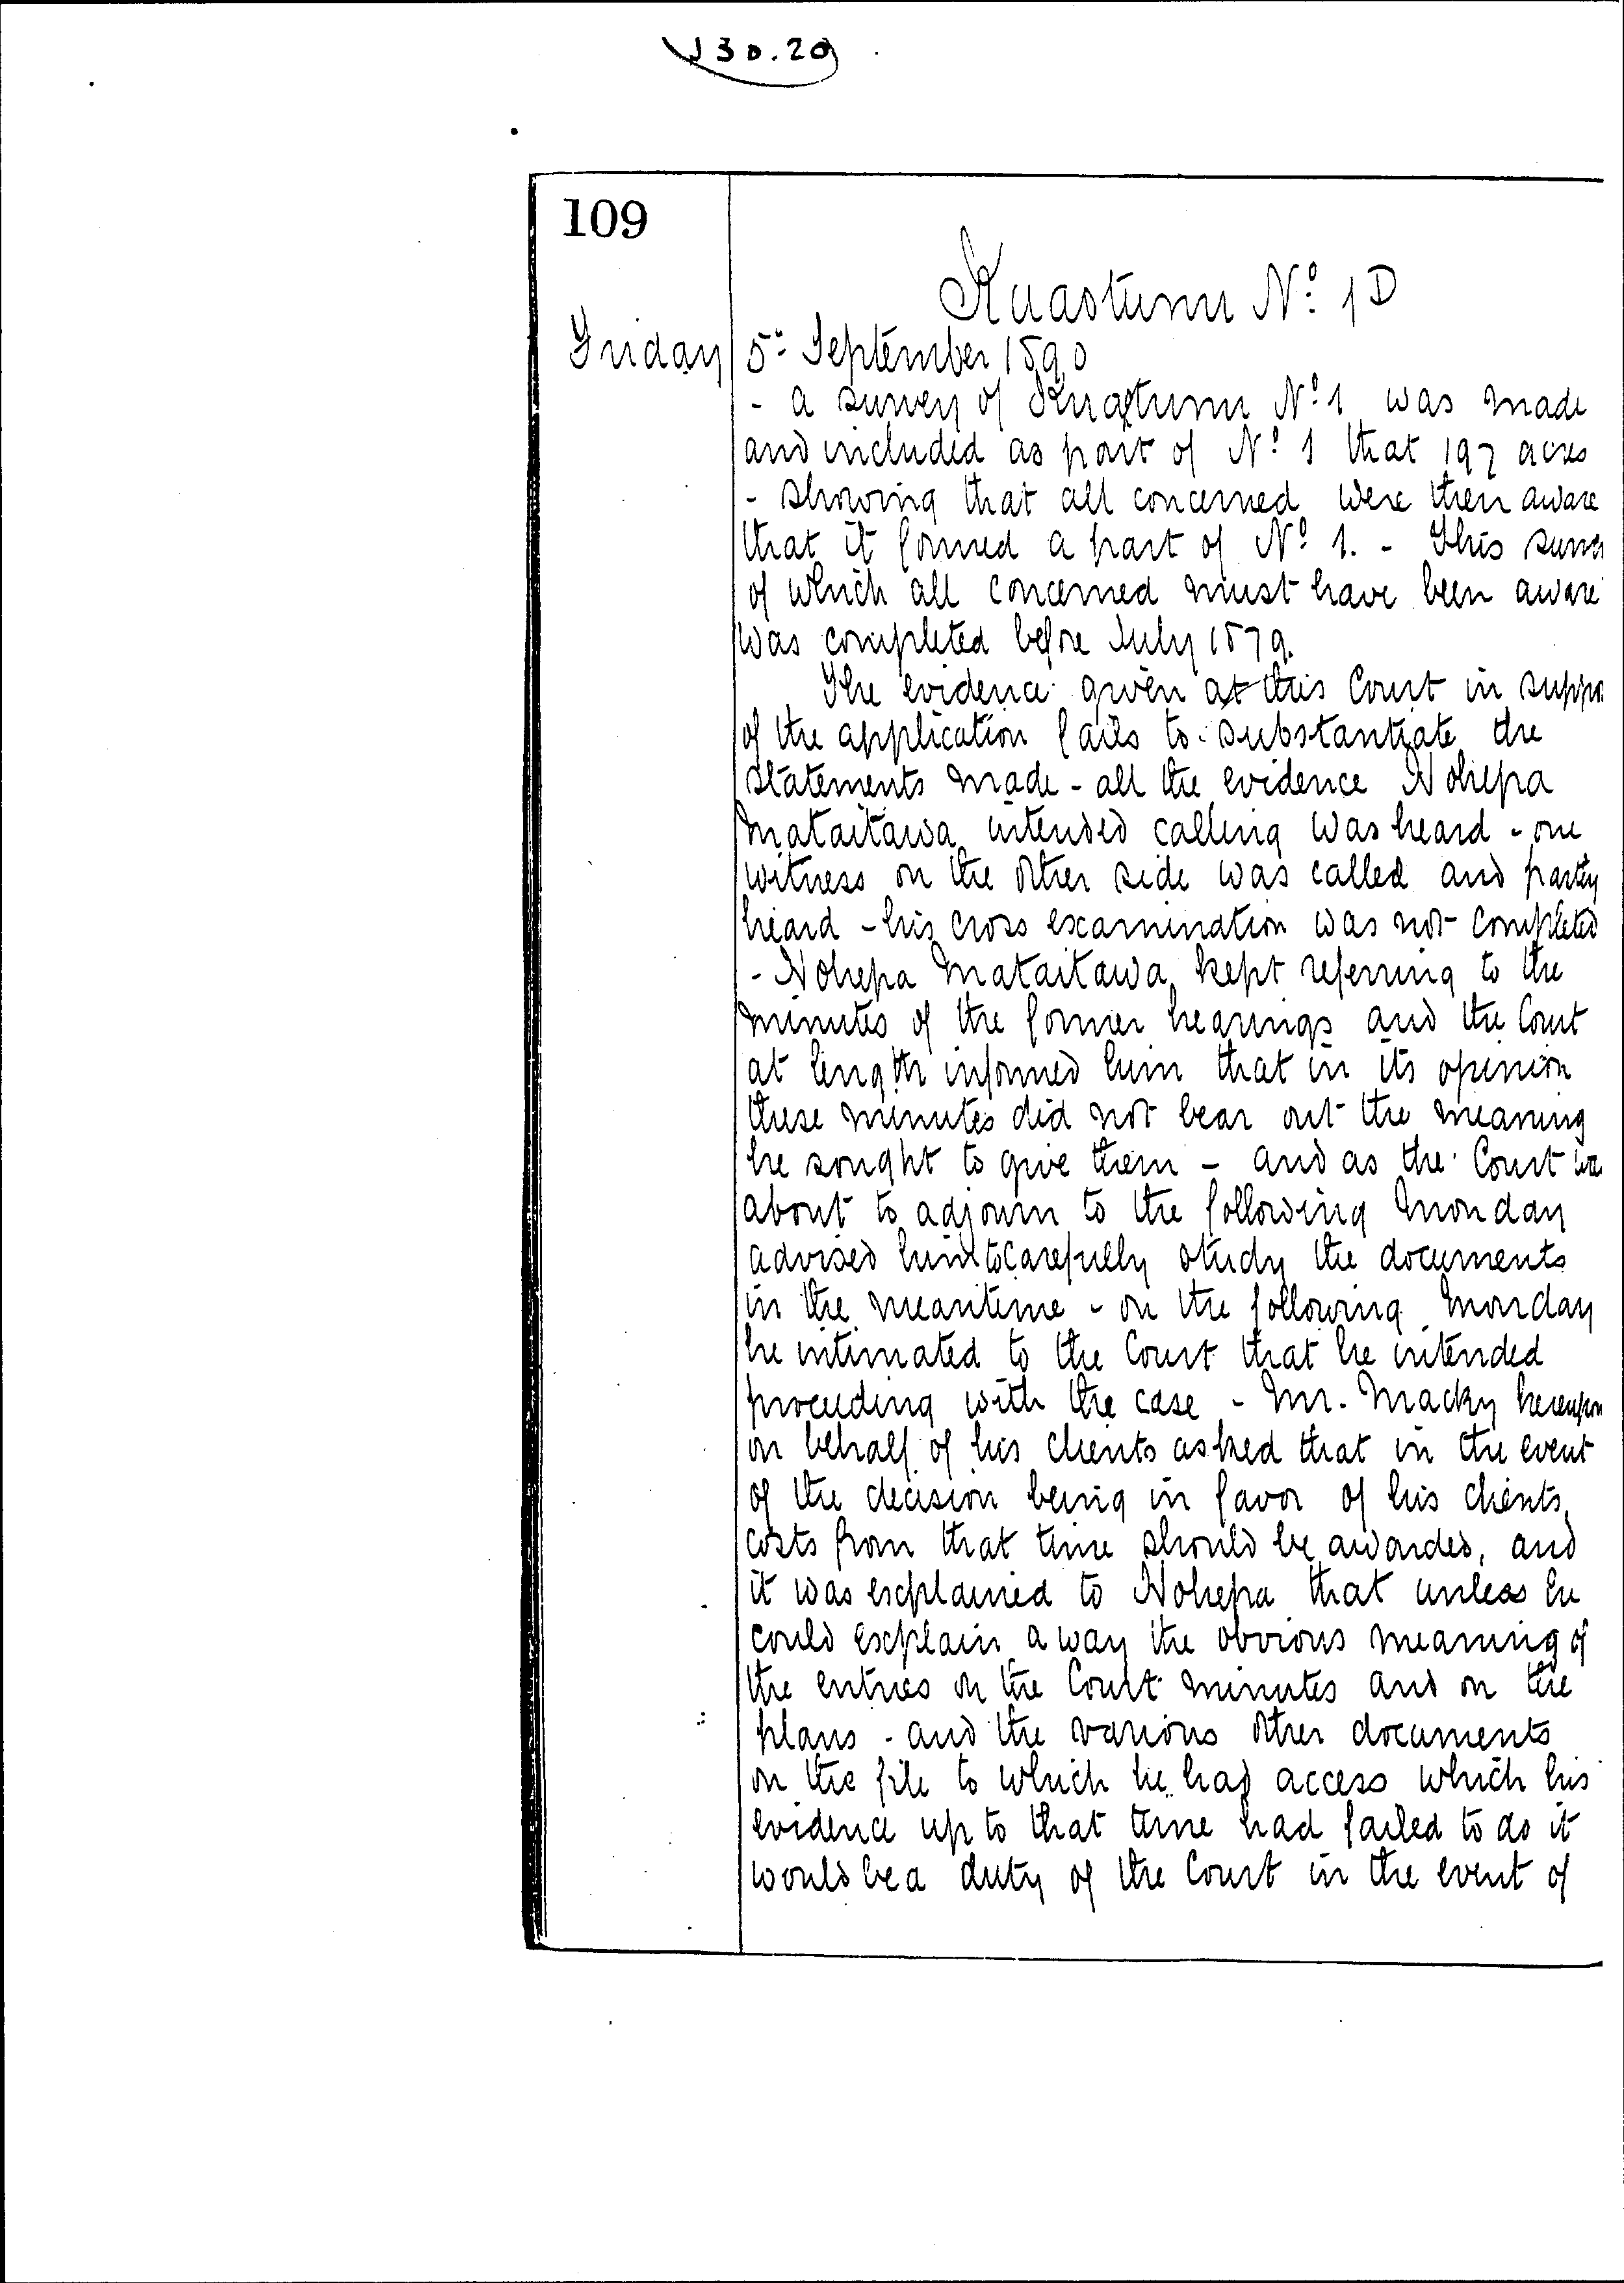 J 30.20
109
Kuaotunu Nº 1D
Friday 5th September 1890
- a survey of Kuaotunu Nº 1 was made
and included as part of Nº 1 that 197 acres
- showing that all concerned were then aware
that it formed a part of Nº 1. - This
of which all concerned must have been aware
was completed before July 1879.
The evidence given at this Court in
of the application fails to substantiate the
statements made - all the evidence Nohepa
Mataitawa intended calling was heard - one
witness on the other side was called and partly
heard - his cross examination was not completed
- Nohepa Mataitawa kept referring to the
minutes of the former hearings and the Court
at length informed him that in its opinion
these minutes did not bear out the meaning
he sought to give them - and as the Court
about to adjourn to the following Monday
advised him to carefully study the documents
in the meantime - on the following Monday
he intimated to the Court that he intended
proceeding with the case - Mr. Macky hereupon
on behalf of his clients asked that in the event
of the decision being in favor of his clients,
costs from that time should be awarded, and
it was explained to Nohepa that unless he
could explain away the obvious meaning of
the entries on the Court minutes and on the
plans - and the various other documents
on the file to which he had access which his
evidence up to that time had failed to do it
would be a duty of the Court in the event of